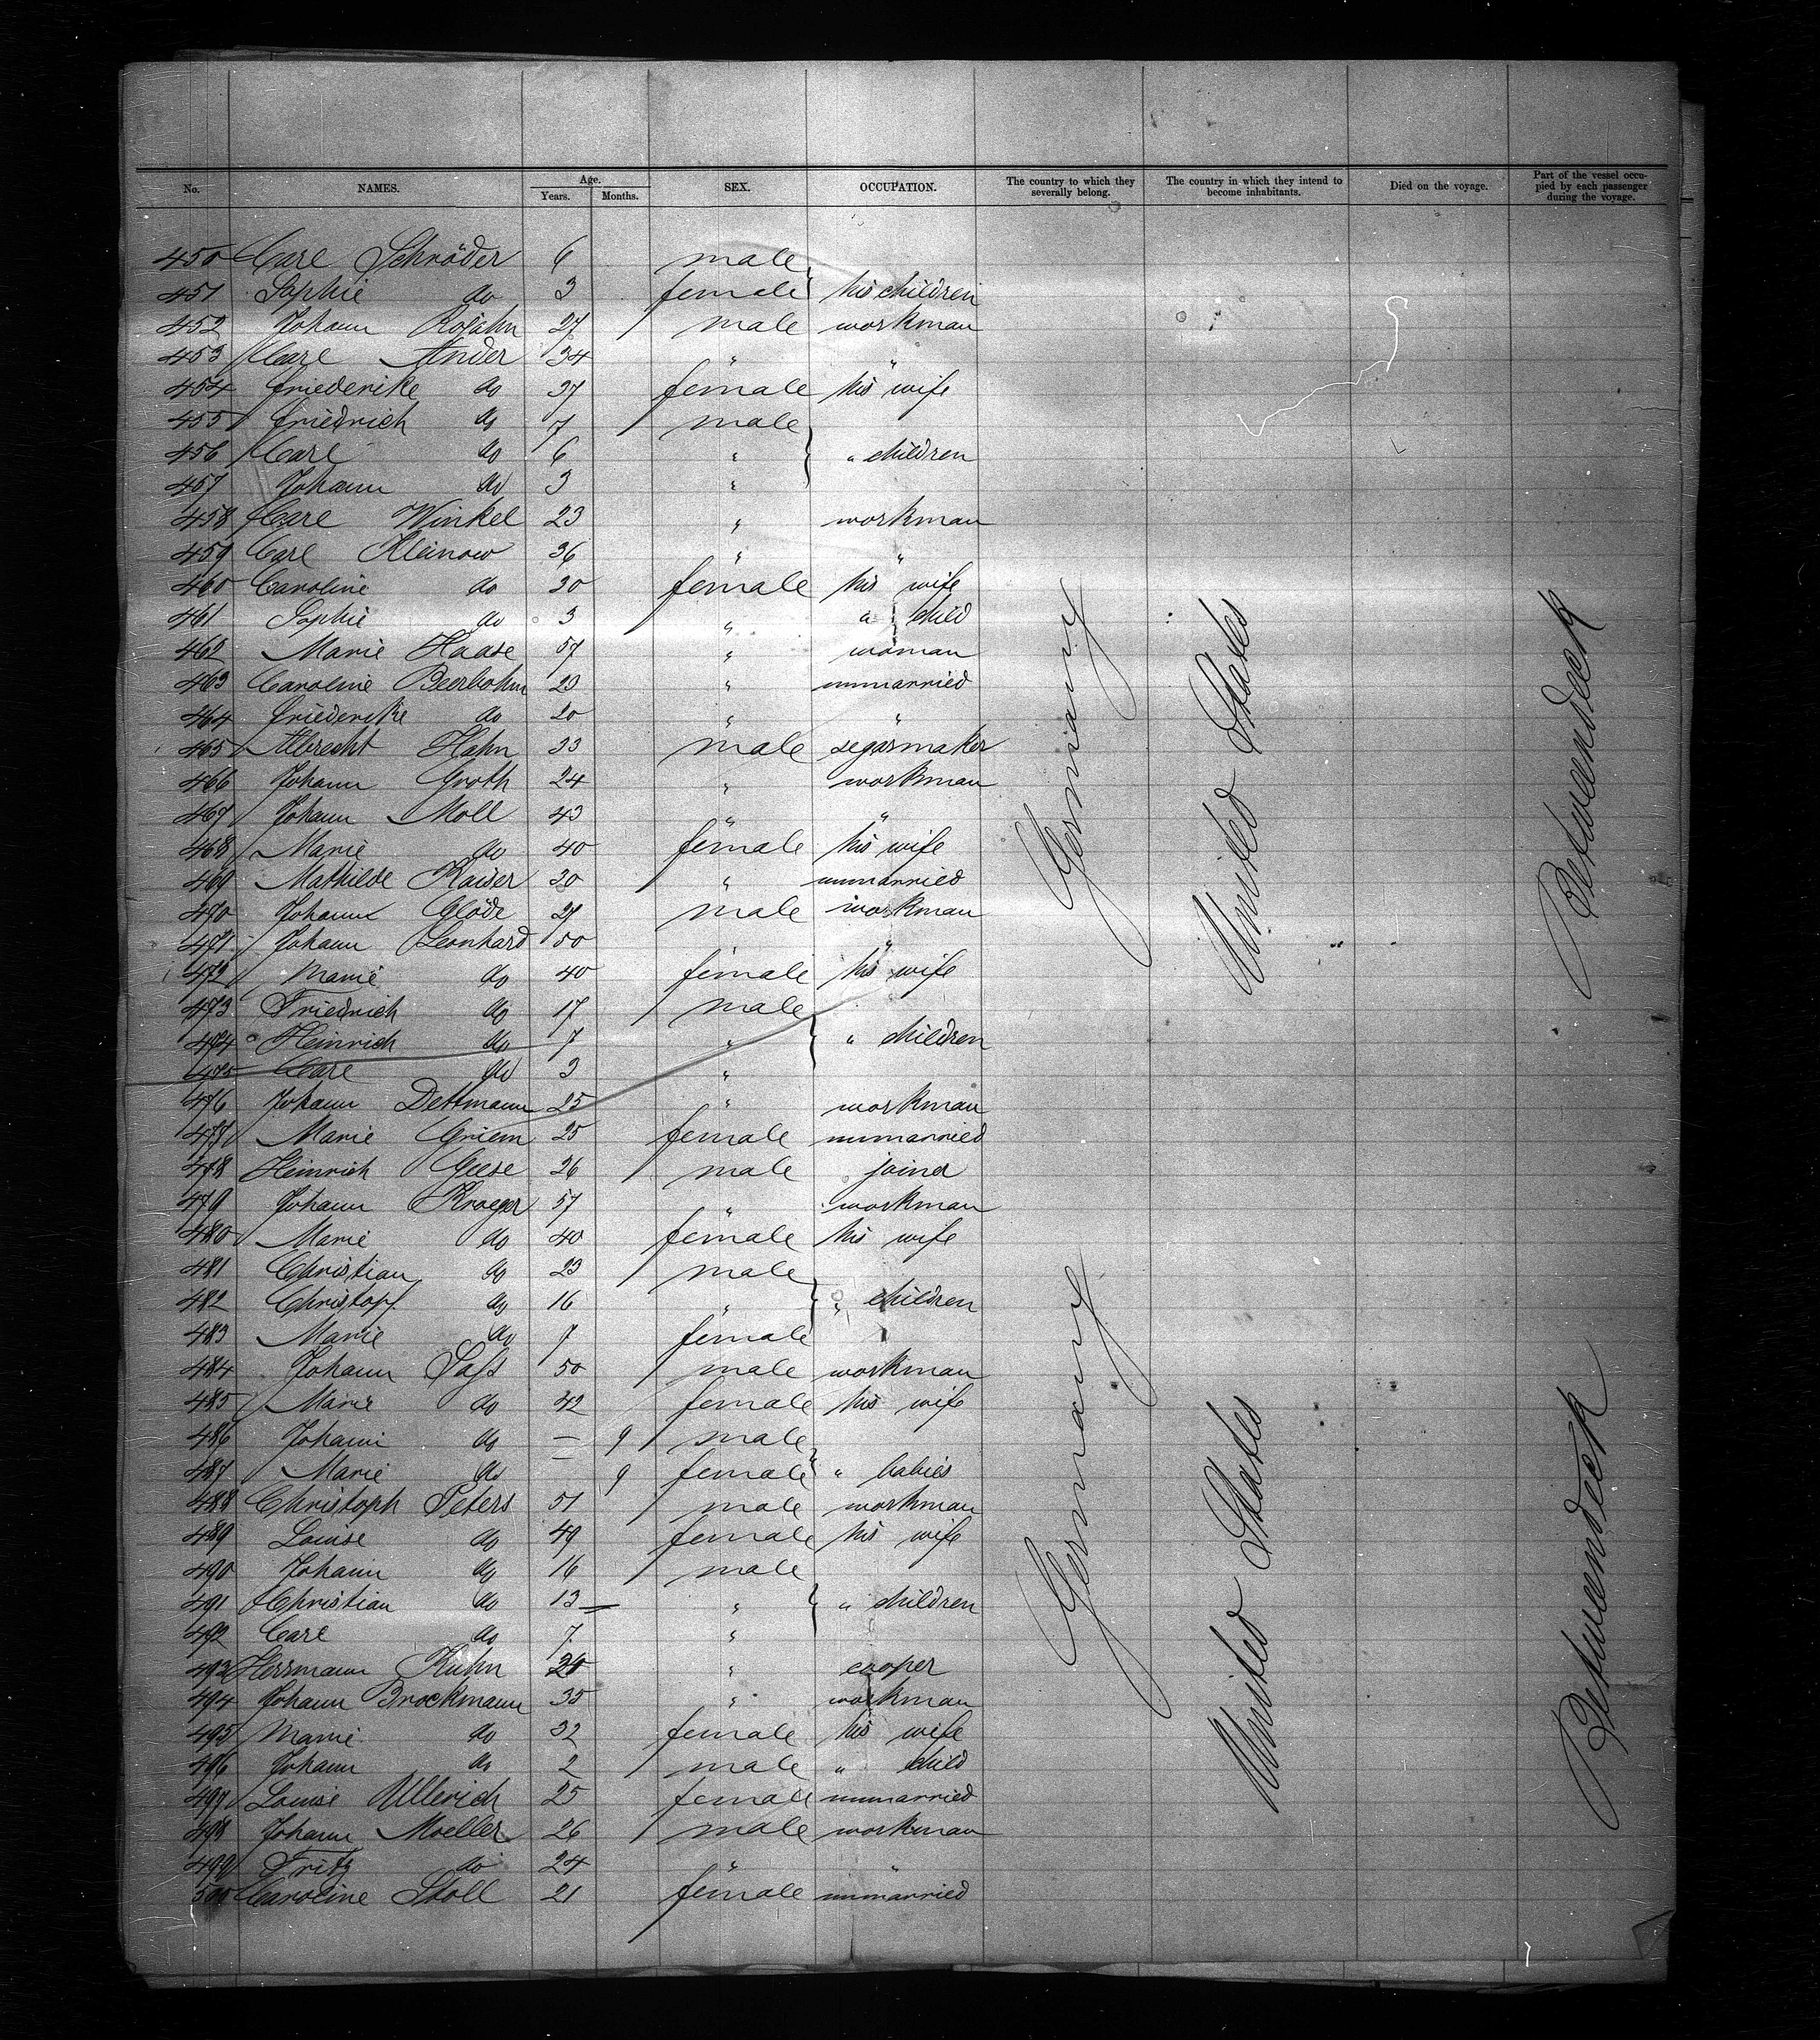 No. NAMES. Age. Years. Months. SEX. OCCUPATION. The country to which they severally belong. The country in which they intend to become inhabitants. Died on the voyage. Part of the vessel occupied by each passenger during the voyage.
450 Carl Schröder 6 male
451 Sophie do 3 female his children
452 Johann Rojahn 27 male workman
453 Carl Ander 34 " "
454 Friederike do 37 female his wife
455 Friedrich do 7 male
456 Carl do 6 " " children
457 Johann do 3 "
458 Carl Winkel 23 " workman
459 Carl Kleinow 36 " "
460 Caroline do 30 female his wife
461 Sophie do 3 " " child
462 Marie Haase 57 " woman
463 Caroline Beerbohm 23 " unmarried
464 Friederike do 20 " "
465 Albrecht Hahn 33 male segarmaker
466 Johann Groth 24 " workman
467 Johann Moll 43 " "
468 Marie do 40 female his wife
469 Mathilde Kaiser 20 " unmarried
470 Johann Glöde 27 male workman
471 Johann Leonhard 50 "
472 Marie do 40 female his wife
473 Friedrich do 17 male
474 Heinrich do 7 " " children
475 Carl do 3 "
476 Johann Dettmann 25 " workman
477 Marie Griem 25 female unmarried
478 Heinrich Geese 26 male joiner
479 Johann Kroeger 57 " workman
480 Marie do 40 female his wife
481 Christian do 23 male
482 Christopf do 16 " " children
483 Marie do 7 female
484 Johann Saß 50 male workman
485 Marie do 42 female his wife
486 Johann do — 9 male
487 Marie do — 9 female " babies
488 Christoph Peters 51 male workman
489 Louise do 49 female his wife
490 Johann do 16 male
491 Christian do 13 " " children
492 Carl do 7 "
493 Herrmann Kuhn " cooper
494 Johann Brockmann 35 " workman
495 Marie do 32 female his wife
496 Johann do 2 male " child
497 Louise Ullerich 25 female unmarried
498 Johann Moeller 26 male workman
499 Fritz do 24 " "
500 Caroline Stoll 21 female unmarried
Germany United States Betweendeck
Germany United States Betweendeck